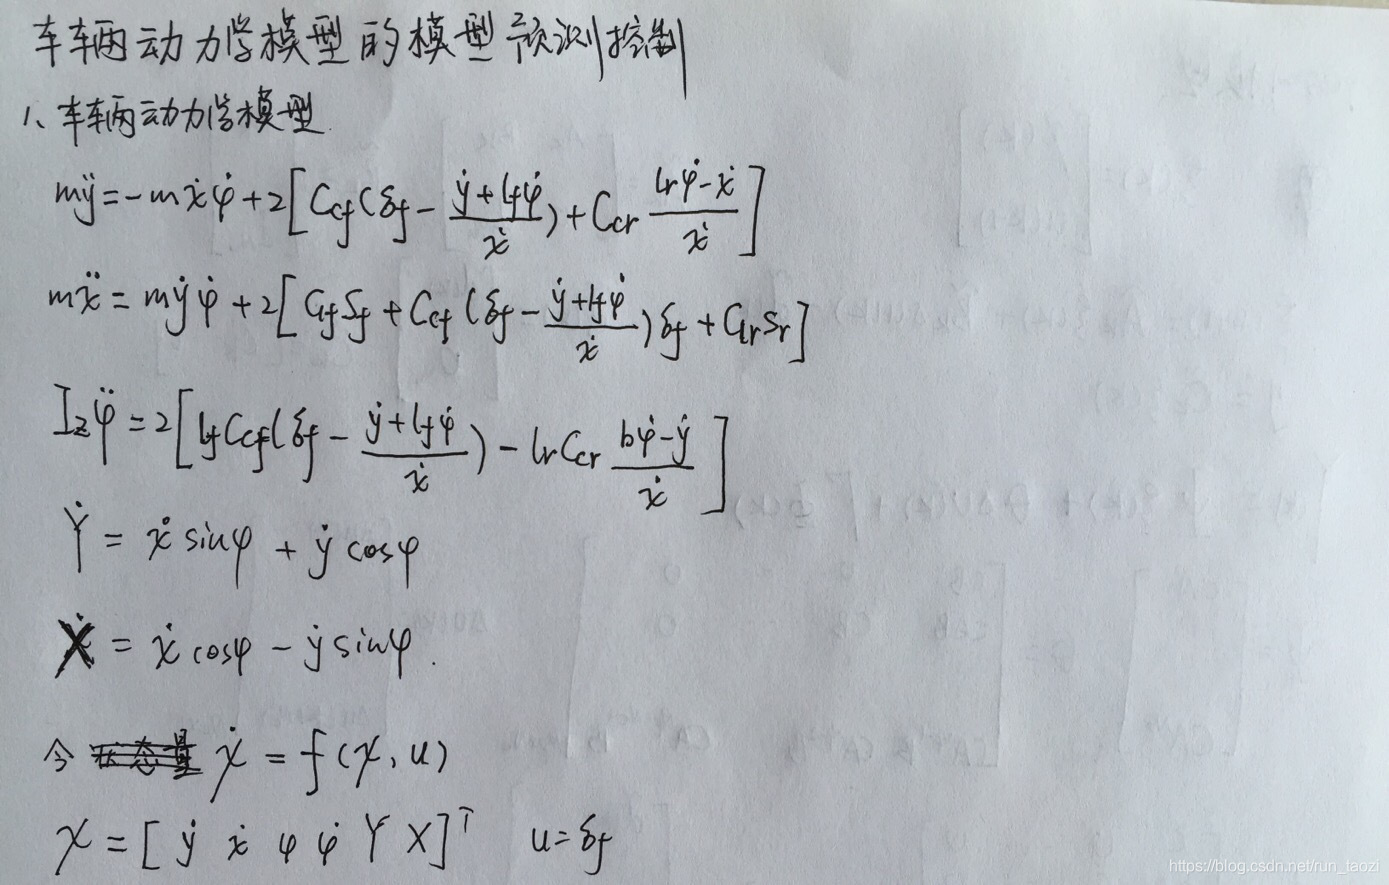 车辆动力学模型的模型预测控制
1、车辆动力学模型
mÿ = -mẋφ̇ + 2[Ccf(δf - (ẏ + lfφ̇)/ẋ) + Ccr (lrφ̇ - ẋ)/ẋ]
mẍ = mẏφ̇ + 2[Clf Sf + Ccf(δf - (ẏ + lfφ̇)/ẋ)δf + Clr Sr]
Izφ̈ = 2[lf Ccf(δf - (ẏ + lfφ̇)/ẋ) - lr Ccr (bφ̇ - ẏ)/ẋ]
Ẏ = ẋ sinφ + ẏ cosφ
Ẋ = ẋ cosφ - ẏ sinφ.
令 状态量 χ̇ = f(χ, u)
χ = [ẏ ẋ φ φ̇ Y X]ᵀ u = δf
https://blog.csdn.net/run_taozi